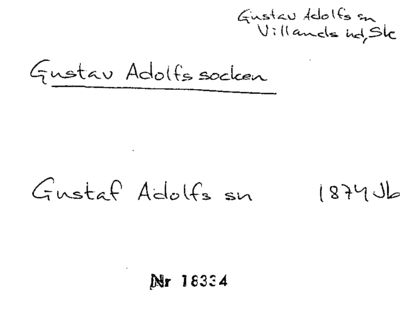 Gustav Adolfs sn
Villands hd, Sk
Gustav Adolfs socken
Gustaf Adolfs sn 1874 Jb
Nr 18334